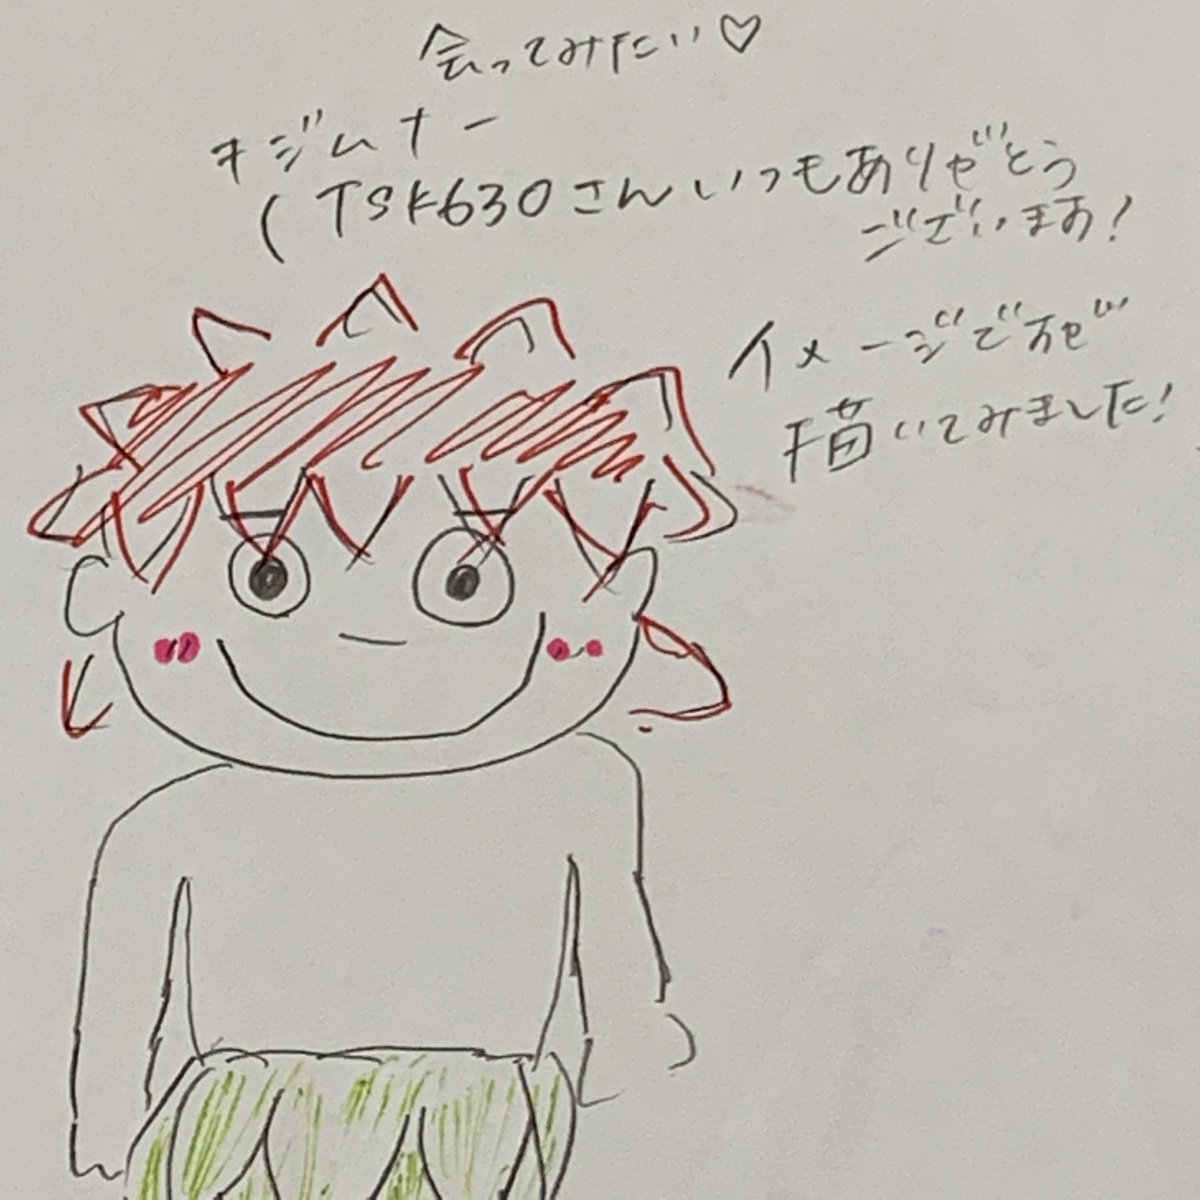 会ってみたい♡
キジムナー
(TSK630さんいつもありがとう
ございます!
イメージですが
描いてみました!